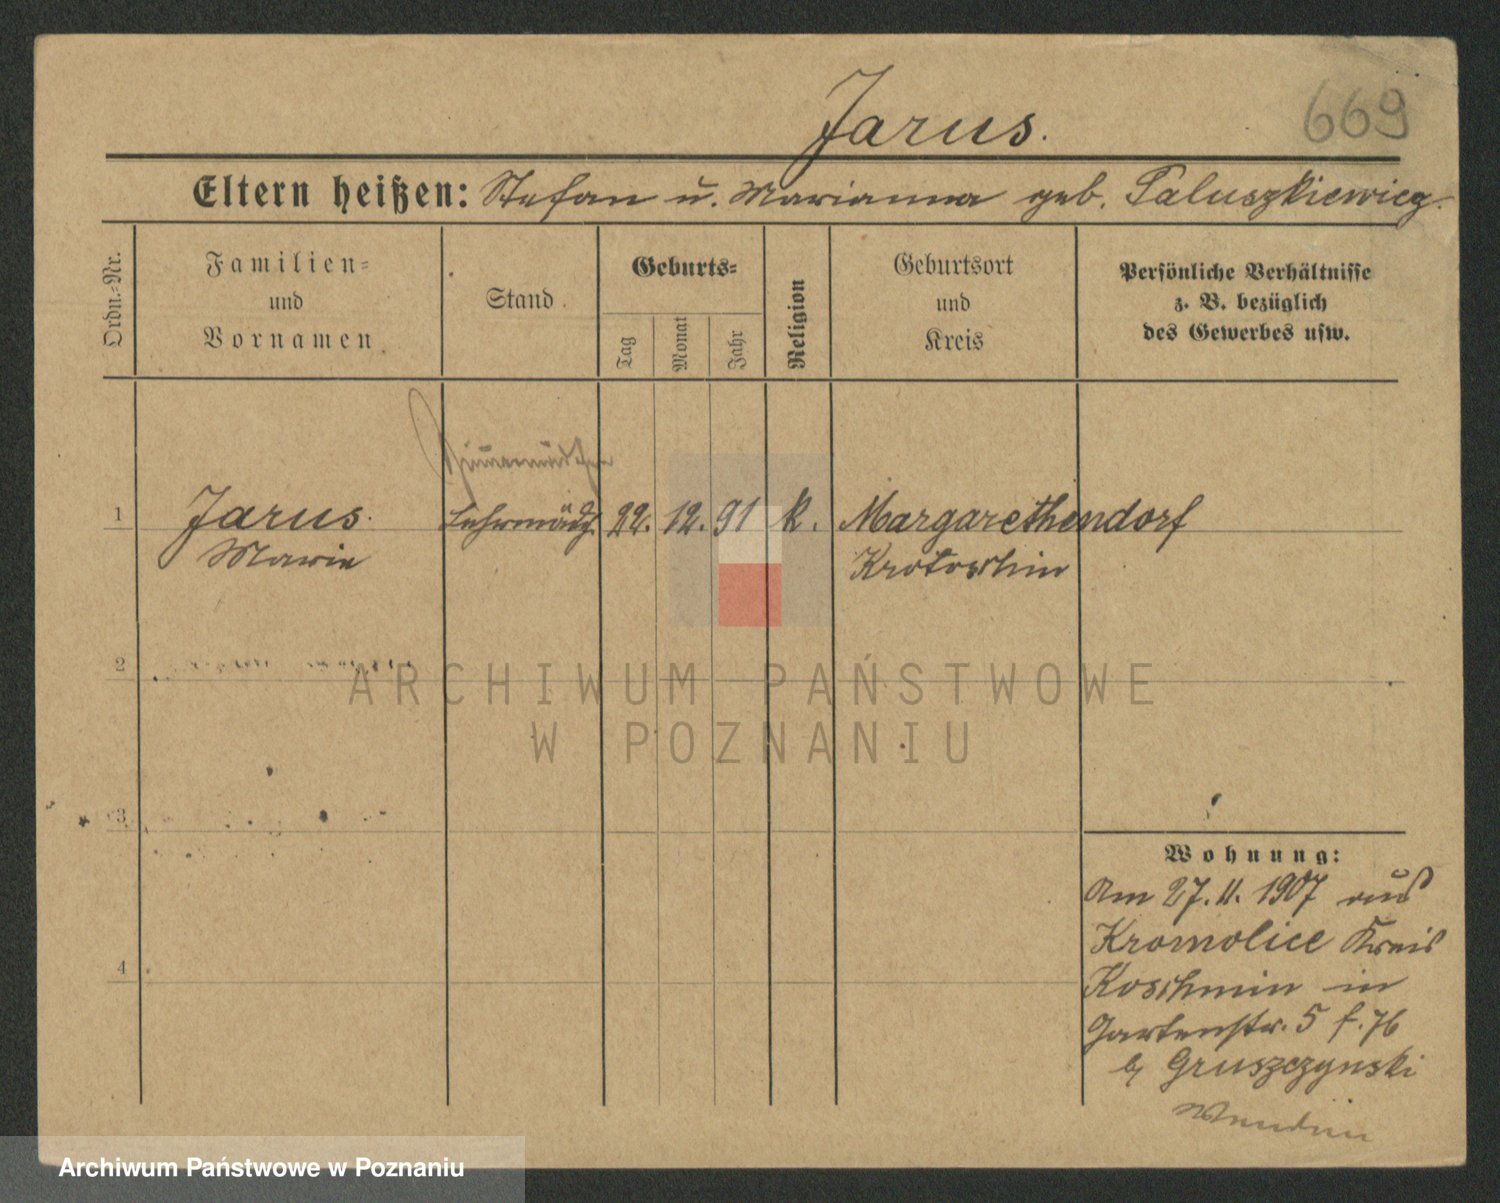 669
Jarus.
Eltern heißen: Stefan u. Marianna geb. Paluszkiewicz.
Ordn.-Nr.
Familien-
und
Vornamen
Stand
Geburts-
Tag
Monat
Jahr
Religion
Geburtsort
und
Kreis
Persönliche Verhältnisse
z. B. bezüglich
des Gewerbes usw.
1 Jarus Lehrmädch. 22. 12. 91 k. Margarethendorf
Marie Krotoschin
2
3
4
Wohnung:
Am 27. 11. 1907 aus
Kromolice Kreis
Koschmin in
Gartenstr. 5 f. 76
b/ Gruszczynski
ARCHIWUM PAŃSTWOWE
W POZNANIU
Archiwum Państwowe w Poznaniu